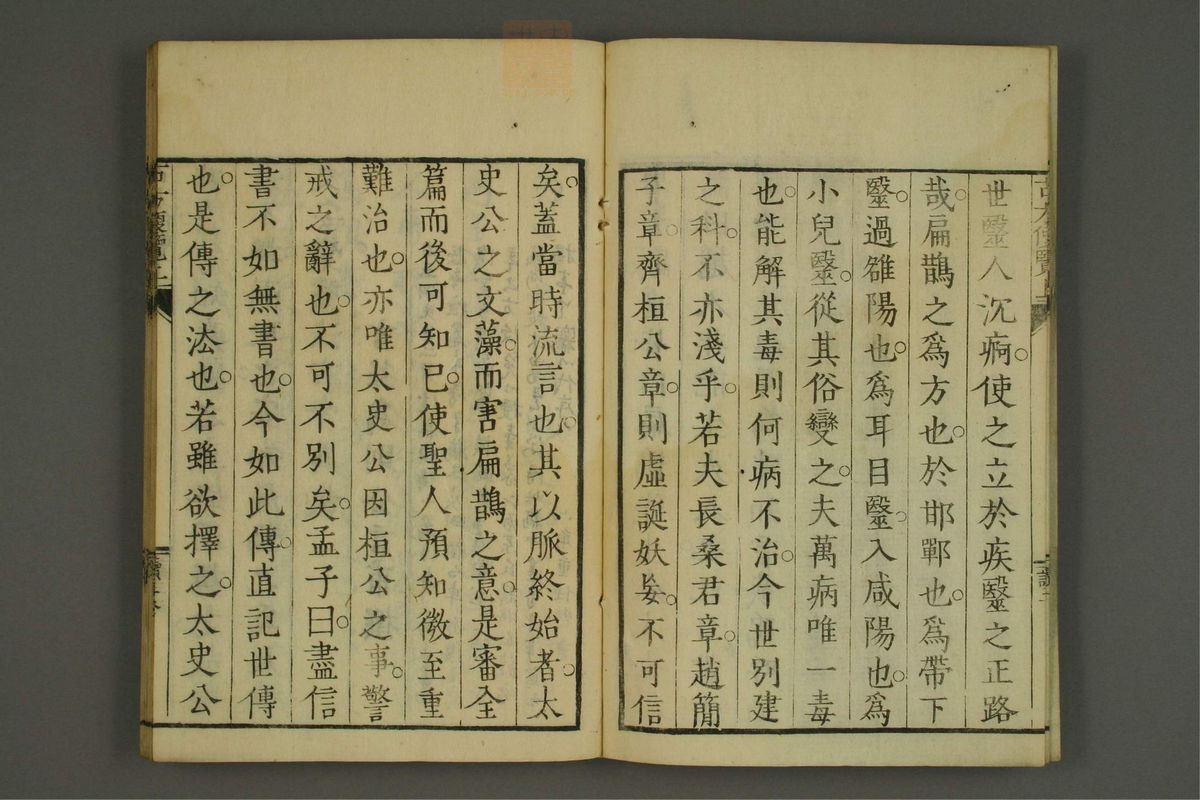 世毉人沉痾使之立於疾毉之正路
哉扁鵲之爲方也於邯鄲也爲帶下
毉過雒陽也爲耳目毉入咸陽也爲
小兒毉從其俗變之夫萬病唯一毒
也能解其毒則何病不治今世別建
之科不亦淺乎若夫長桑君章趙簡
子章齊桓公章則虛誕妖妄不可信
矣蓋當時流言也其以脈終始者太
史公之文藻而害扁鵲之意是審全
篇而後可知已使聖人預知微至重
難治也亦唯太史公因桓公之事警
戒之辭也不可不別矣孟子曰盡信
書不如無書也今如此傳直記世傳
也是傳之法也若雖欲擇之太史公